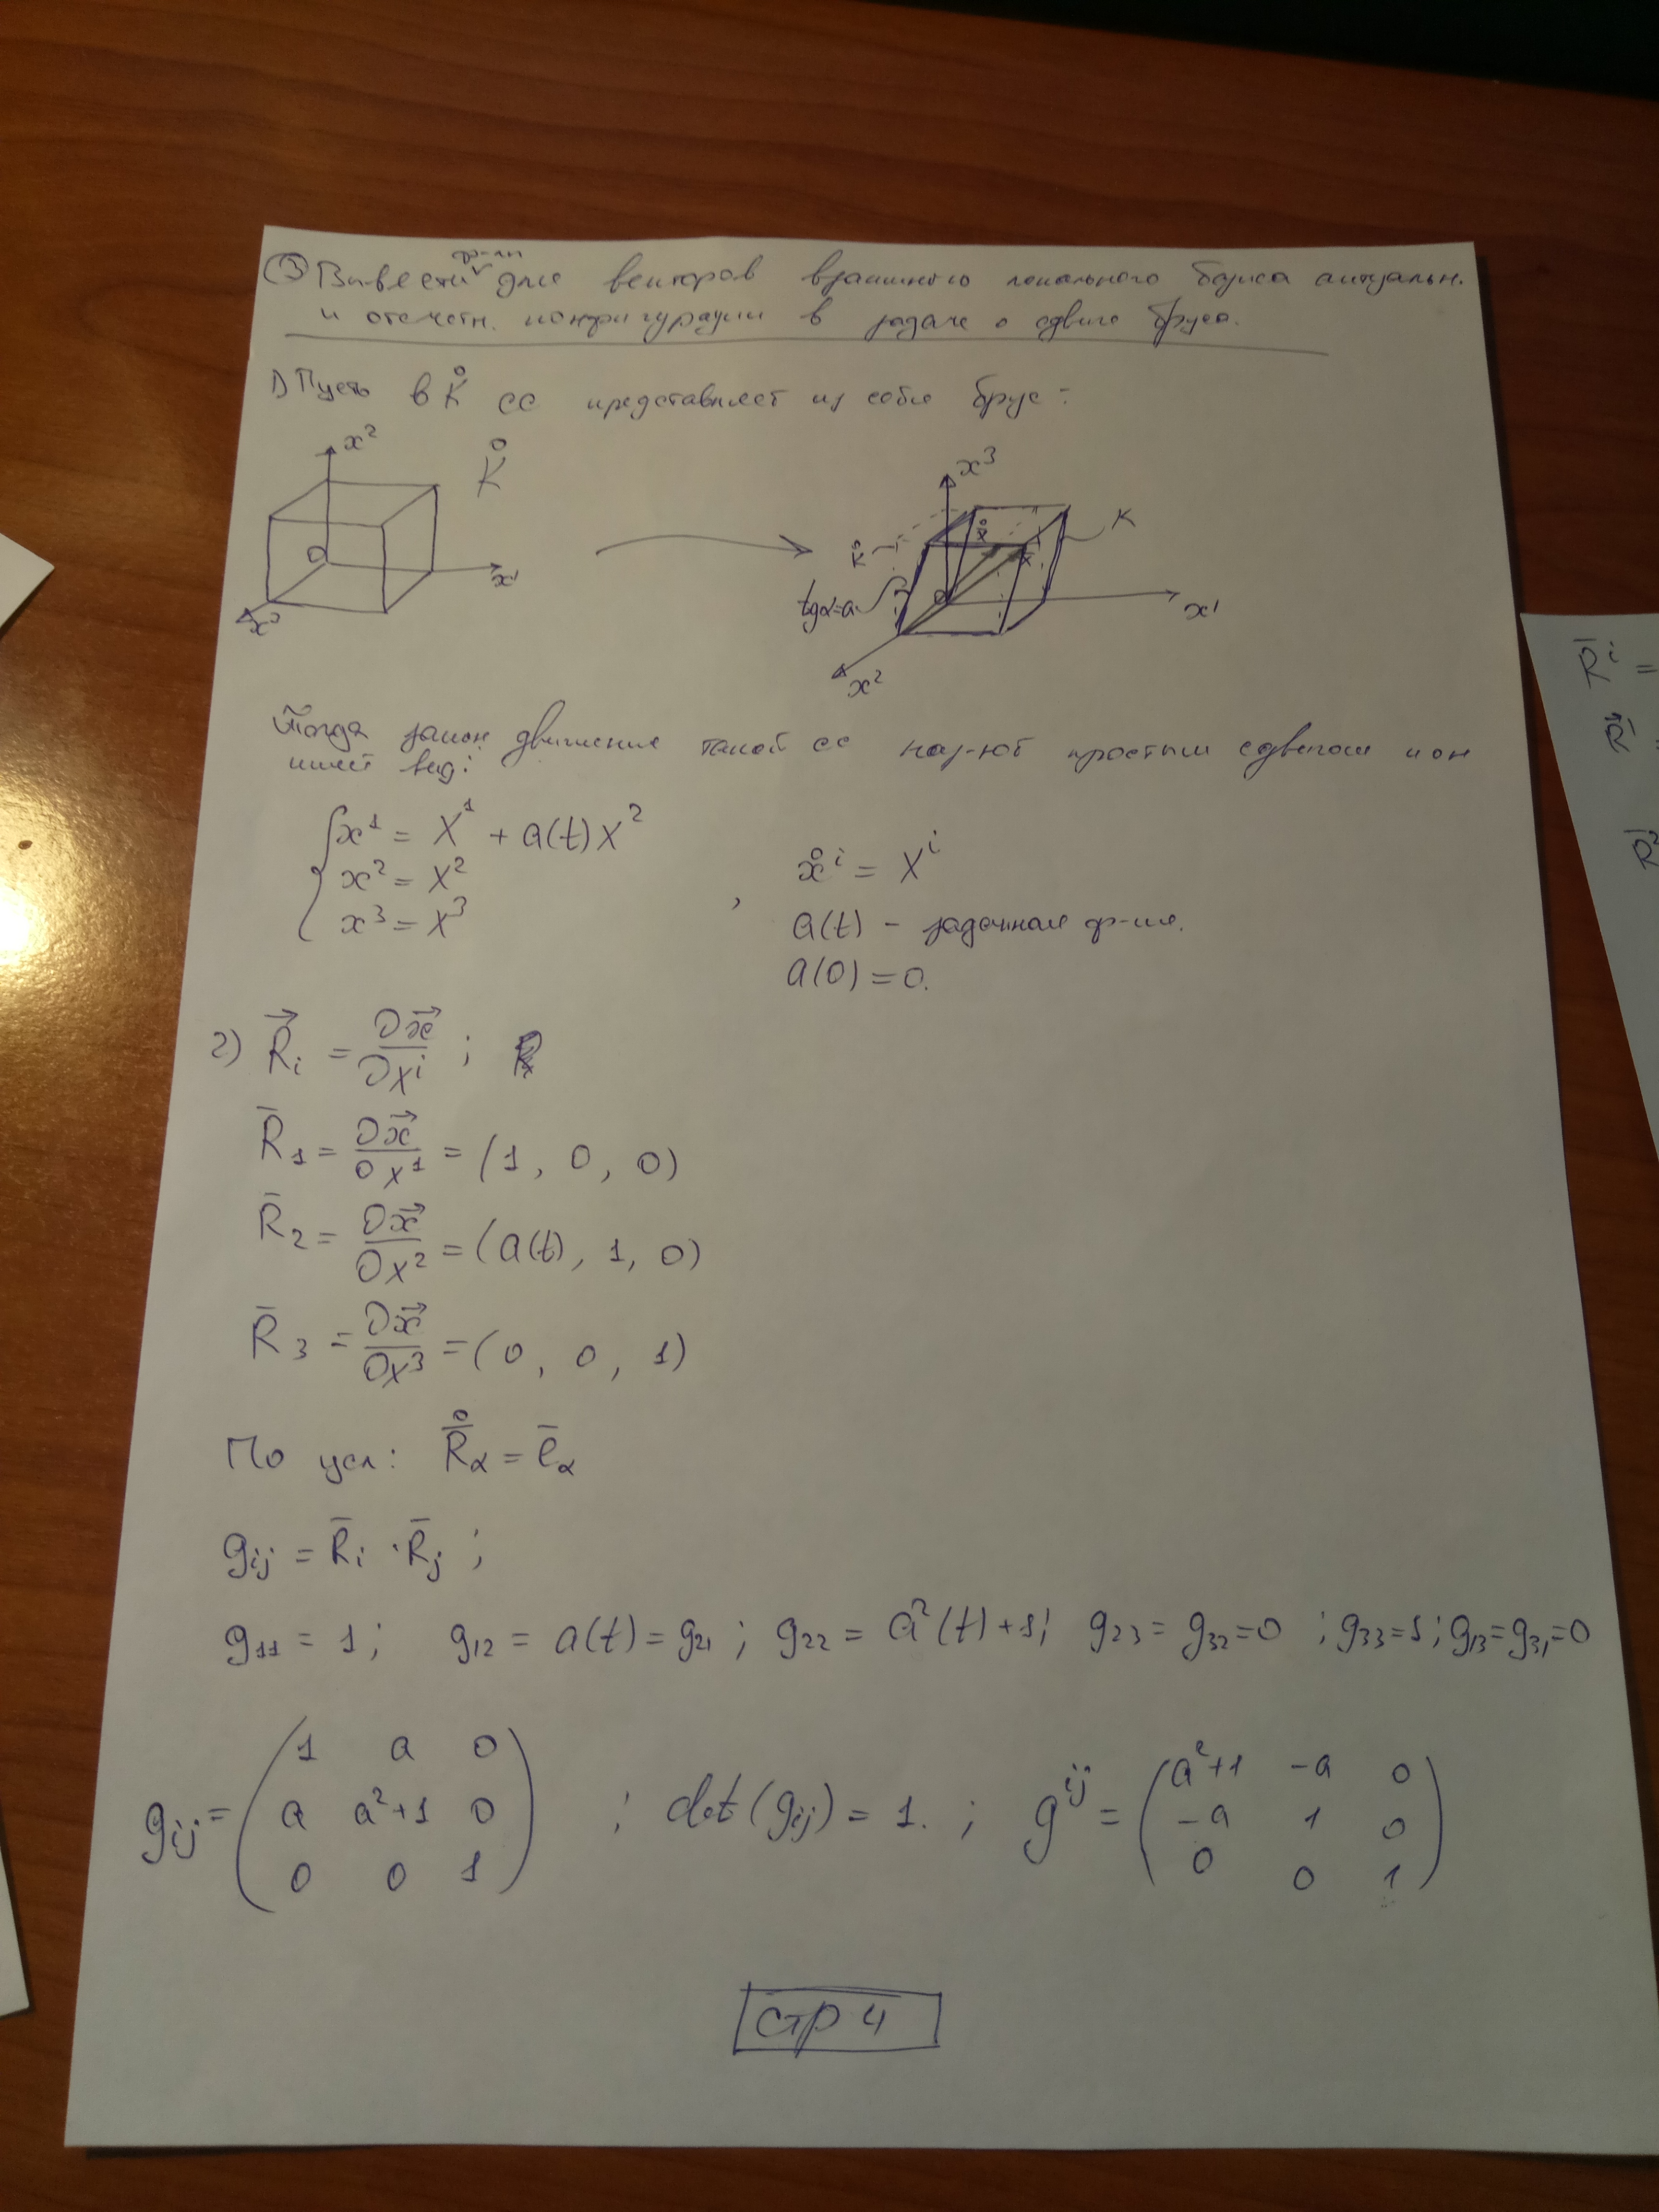 ③ Вывести ф-лы для векторов взаимного локального базиса актуальн.
и отсчетн. конфигурации в задаче о сдвиге бруса.
1) Пусть в K̊ СС представляет из себя брус:
x² K̊
O x¹
x³
x³
K
K̊ x̊ x
tgα=a O x¹
x²
Тогда закон движения такой СС наз-ют простым сдвигом и он
имеет вид:
{ x¹ = X¹ + a(t)X²
x² = X²
x³ = X³ ,
x̊ⁱ = Xⁱ
a(t) – заданная ф-ия.
a(0) = 0.
2) R⃗ᵢ = ∂x⃗/∂Xⁱ ;
R̄₁ = ∂x⃗/∂X¹ = (1, 0, 0)
R̄₂ = ∂x⃗/∂X² = (a(t), 1, 0)
R̄₃ = ∂x⃗/∂X³ = (0, 0, 1)
По усл: R̊̄α = ēα
gᵢⱼ = R̄ᵢ · R̄ⱼ ;
g₁₁ = 1; g₁₂ = a(t) = g₂₁ ; g₂₂ = a²(t)+1; g₂₃ = g₃₂ = 0 ; g₃₃ = 1; g₁₃ = g₃₁ = 0
gᵢⱼ = (1 a 0
a a²+1 0
0 0 1) ; det(gᵢⱼ) = 1. ; gⁱʲ = (a²+1 -a 0
-a 1 0
0 0 1)
стр 4
R̄ⁱ =
R⃗¹
R̄²